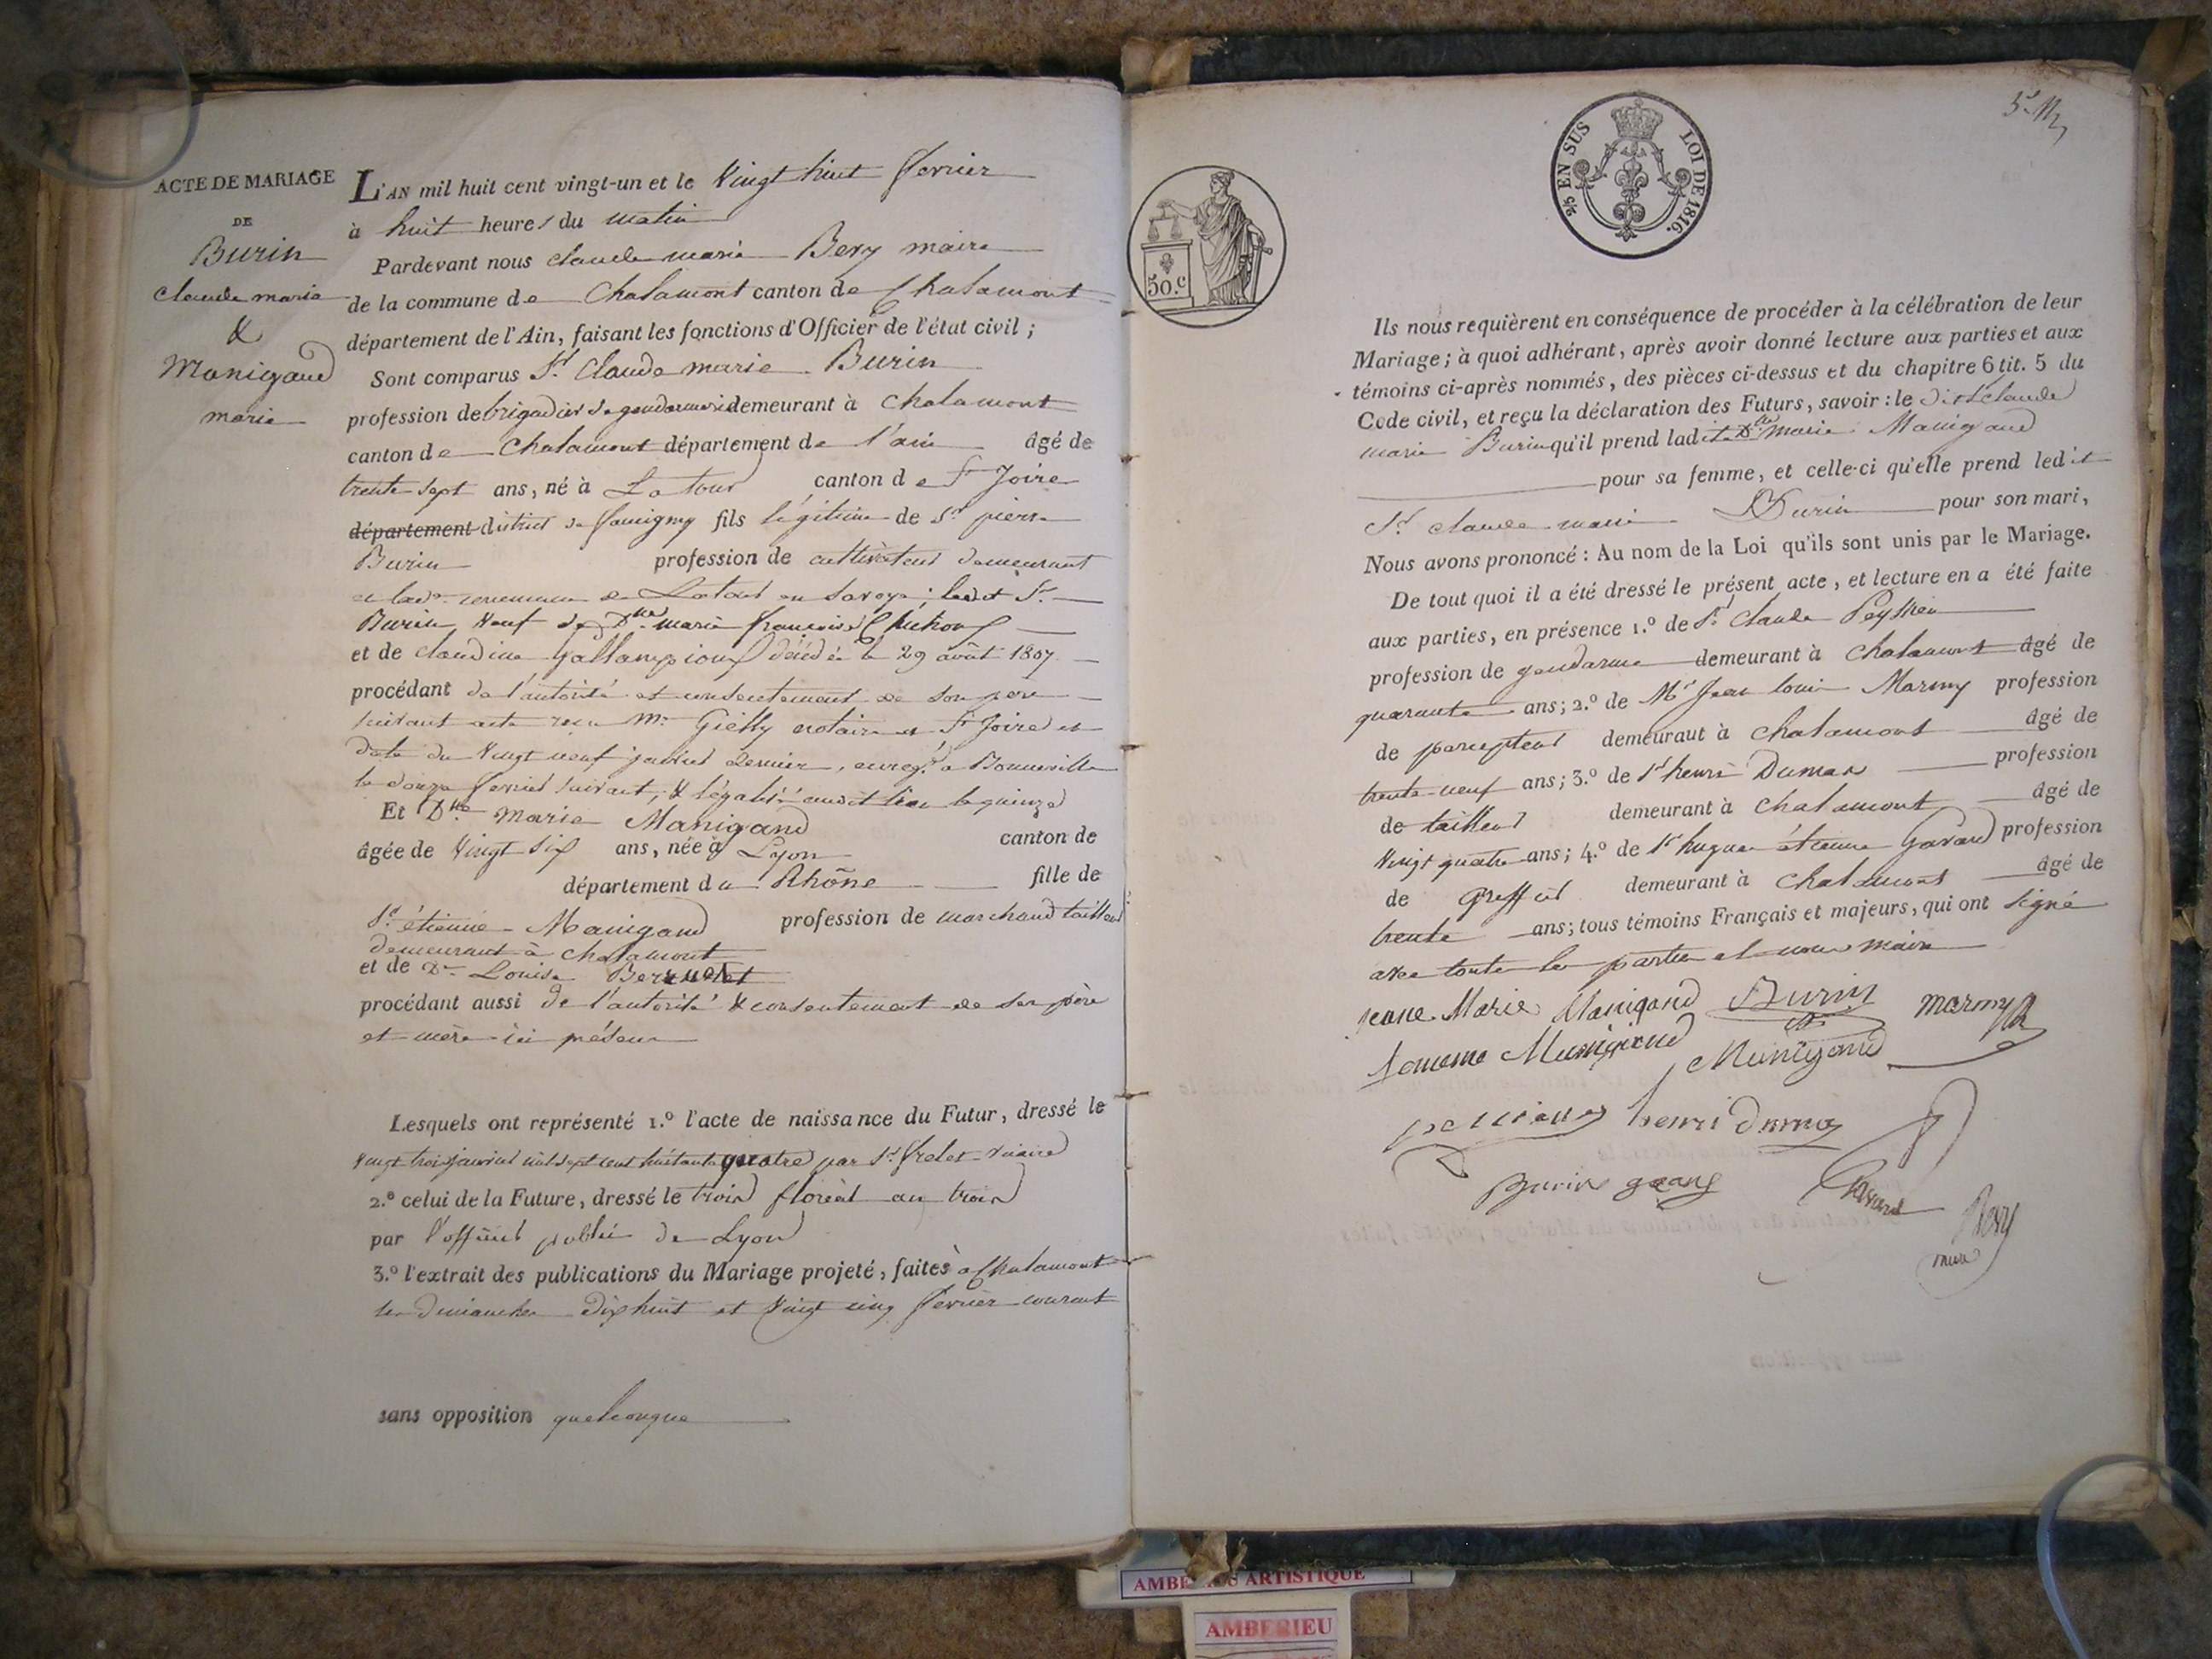 ACTE DE MARIAGE
DE
Burin
claude marie
&
Manigand
marie
L'AN mil huit cent vingt-un et le Vingt huit fevrier
à huit heures du matin
Pardevant nous claude marie Bery maire
de la commune de Chalamont canton de Chalamont
département de l'Ain, faisant les fonctions d'Officier de l'état civil ;
Sont comparus Sr. Claude marie Burin
profession de brigadier de gendarmerie demeurant à Chalamont
canton de Chalamont département de l'ain âgé de
trente sept ans, né à La tour canton de St Joire
département district de faucigny fils légitime de Sr pierre
Burin profession de cultivateur demeurant
commune de Latour en Savoye ; ledit Sr.
Burin Veuf de Dme marie françoise
et de claudine Gallampioux décédée le 29 août 1807
procédant de l'autorité et consentement de son père
suivant acte reçu Me notaire à St Joire en
date du Vingt neuf janvier dernier, enregé. à Bonneville
le douze fevrier suivant, & légalisé audit lieu le quinze
Et Dlle marie Manigand
âgée de Vingt six ans, née à Lyon canton de
département du Rhône fille de
Sr. étienne Manigand profession de marchand tailleur
demeurant à Chalamont
et de De. Louise
procédant aussi de l'autorité & consentement de ses père
et mère ici présens
Lesquels ont représenté 1.º l'acte de naissance du Futur, dressé le
Vingt trois janvier mil sept cent huitante quatre par Sr. frelet Vicaire
2.º celui de la Future, dressé le trois floréal an trois
par l'officier public de Lyon
3.º l'extrait des publications du Mariage projeté, faites à Chalamont
les Dimanches Dix huit et Vingt cinq fevrier courant
sans opposition quelconque
50.c
2/5 EN SUS LOI DE 1816.
Ils nous requièrent en conséquence de procéder à la célébration de leur
Mariage ; à quoi adhérant, après avoir donné lecture aux parties et aux
témoins ci-après nommés, des pièces ci-dessus et du chapitre 6 tit. 5 du
Code civil, et reçu la déclaration des Futurs, savoir : le dit Sr Claude
marie Burin qu'il prend ladite Dlle marie Manigand
pour sa femme, et celle-ci qu'elle prend ledit
Sr. claude marie Burin pour son mari,
Nous avons prononcé : Au nom de la Loi qu'ils sont unis par le Mariage.
De tout quoi il a été dressé le présent acte, et lecture en a été faite
aux parties, en présence 1.º de Sr. Claude
profession de gendarme demeurant à Chalamont âgé de
quarante ans ; 2.º de Mr Jean louis Marmy profession
de percepteur demeuraut à Chalamont âgé de
trente-neuf ans ; 3.º de Sr henri Dumas profession
de tailleur demeurant à Chalamont âgé de
Vingt quatre ans ; 4.º de Sr hugues étienne Gavard profession
de Greffier demeurant à Chalamont âgé de
trente ans ; tous témoins Français et majeurs, qui ont signé
avec toutes les parties et nous maire
jeane Marie Manigand Burin marmy
Manigand Manigand
henri dumas
Burin Gavard Bery
maire
AMBERIEU ARTISTIQUE
AMBERIEU